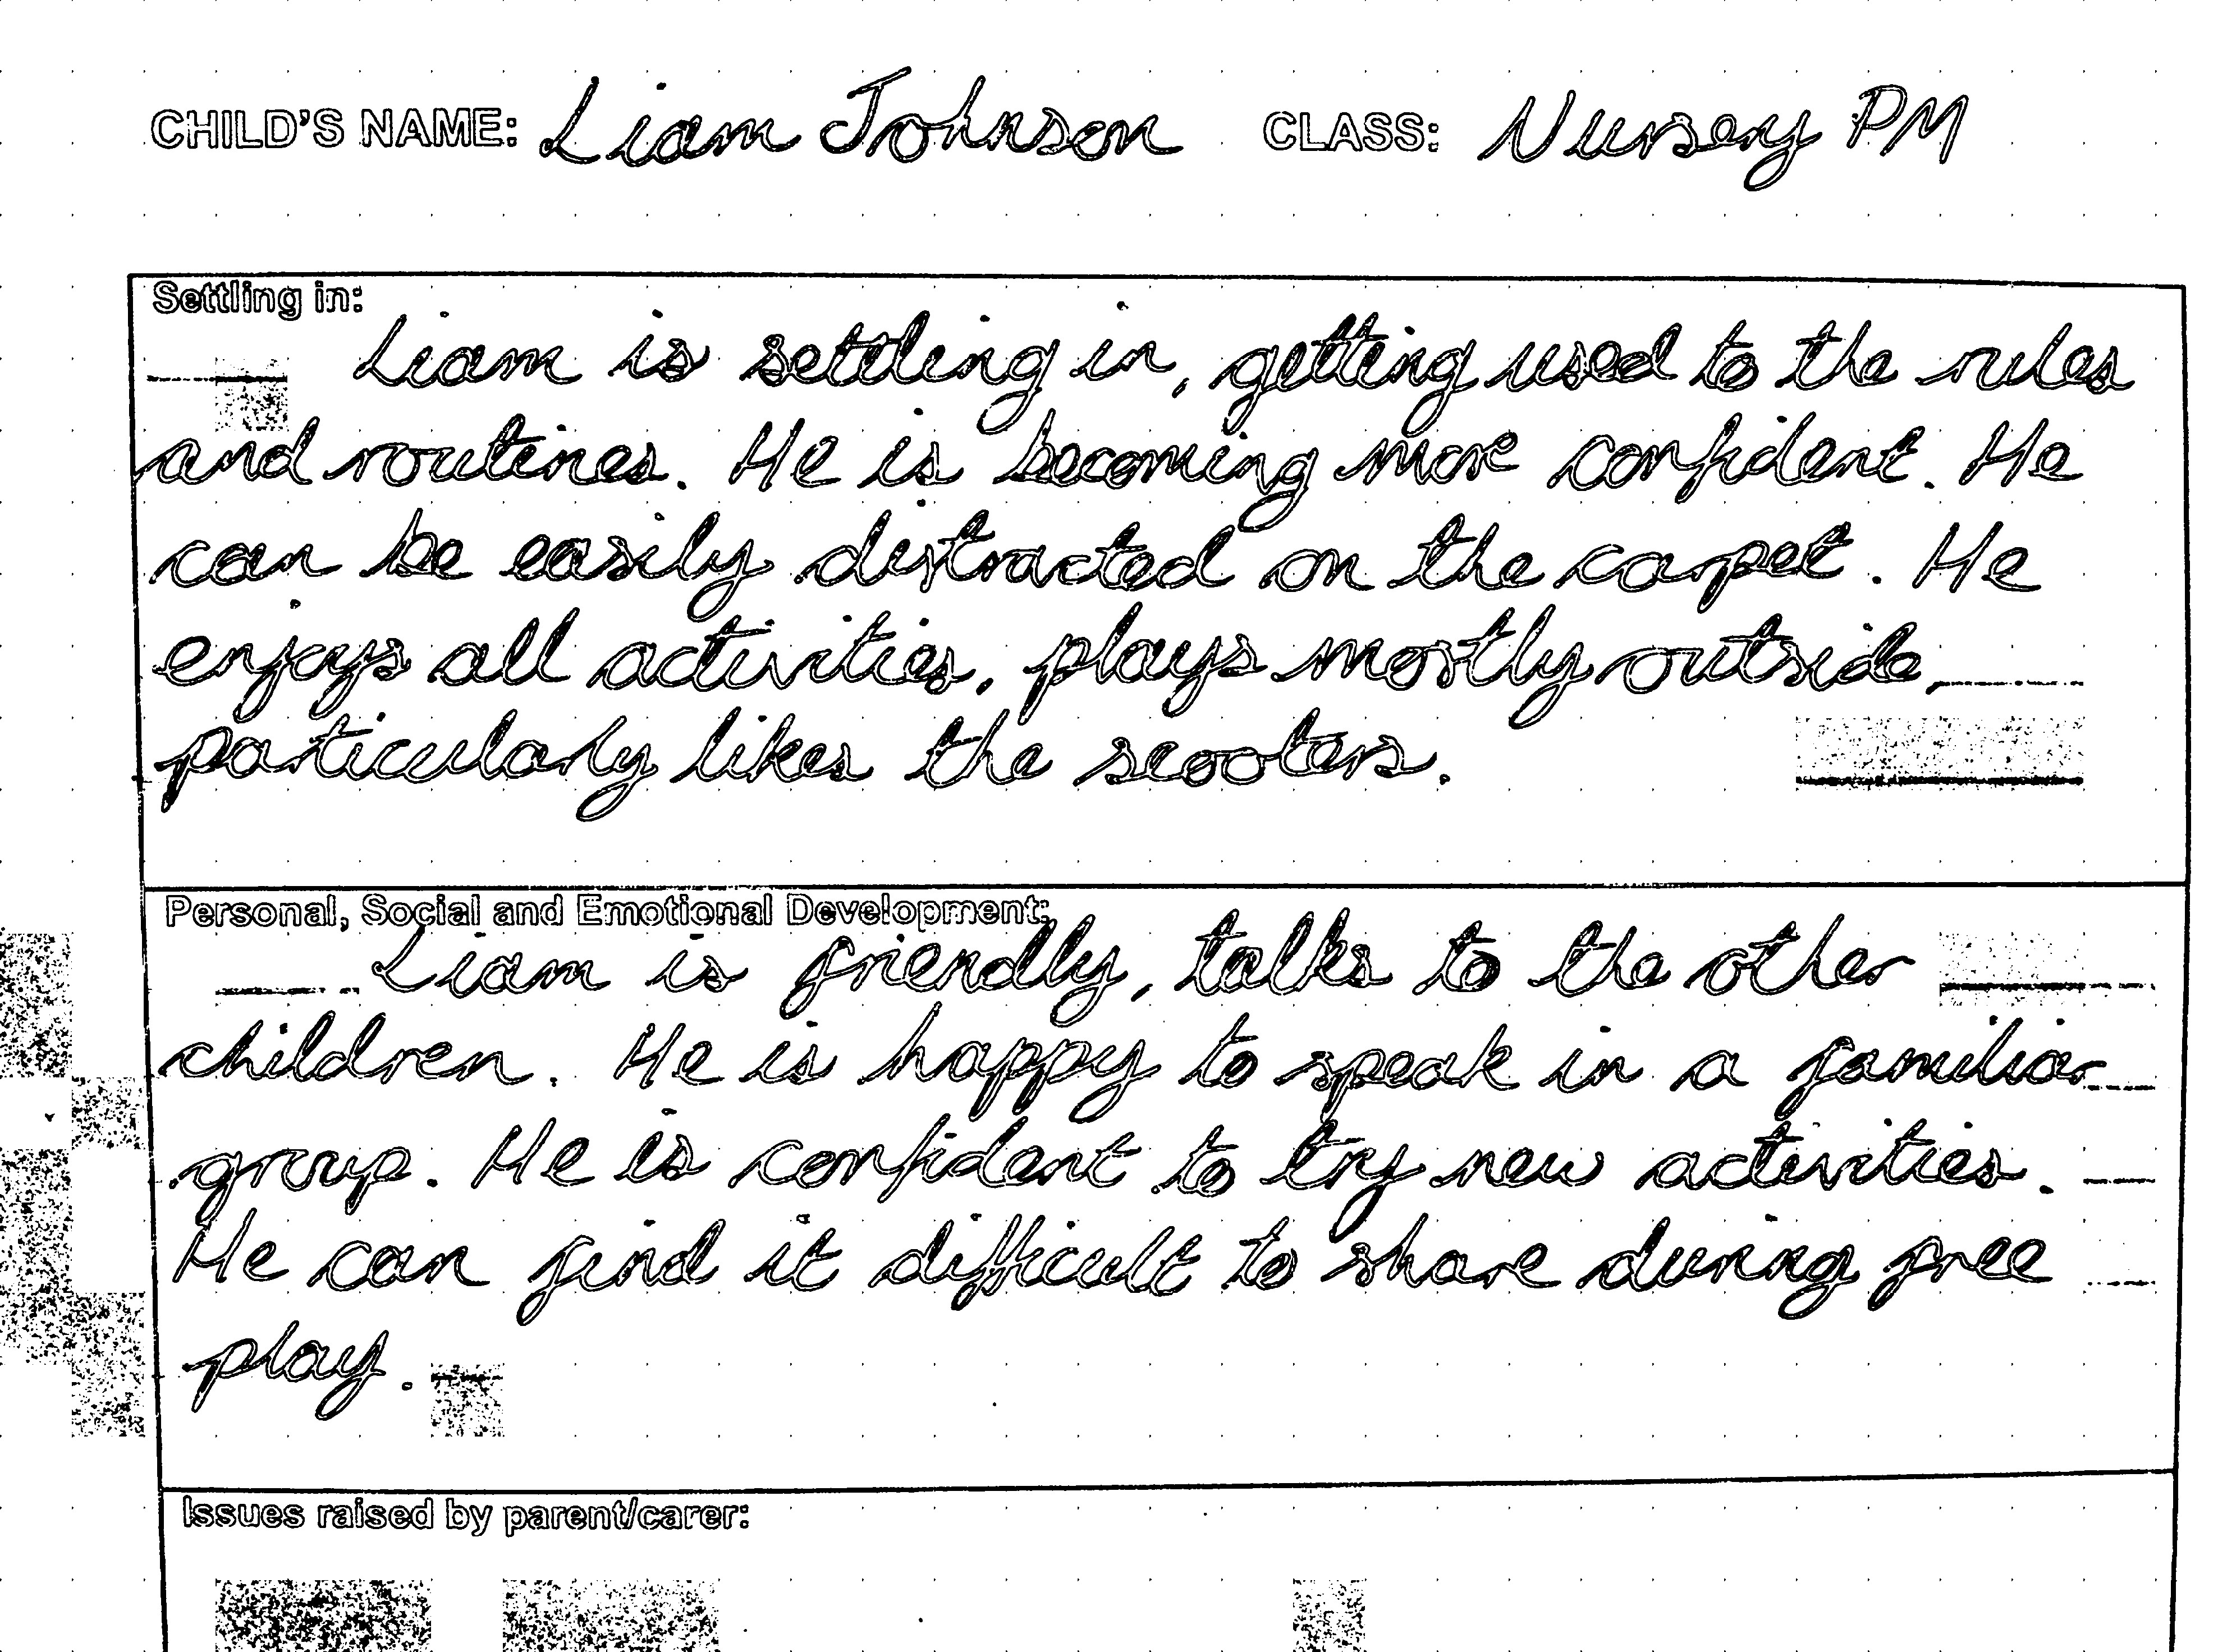 CHILD'S NAME: Liam Johnson CLASS: Nursery PM
Settling in:
Liam is settling in, getting used to the rules
and routines. He is becoming more confident. He
can be easily distracted on the carpet. He
enjoys all activities, plays mostly outside,
particularly likes the scooters.
Personal, Social and Emotional Development:
Liam is friendly, talks to the other
children. He is happy to speak in a familiar
group. He is confident to try new activities.
He can find it difficult to share during free
play.
Issues raised by parent/carer: